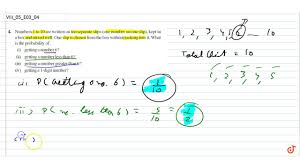 VIII_05_E03_04
4. Numbers 1 to 10 are written on ten separate slips (one number on one slip), kept in
a box and mixed well. One slip is chosen from the box without looking into it. What
is the probability of
(i) getting a number 6?
(ii) getting a number less than 6?
(iii) getting a number greater than 6?
(iv) getting a 1-digit number?
1, 2, 3, 4, 5, 6 10
= 10
1, 2, 3, 4, 5
P(getting a no. 6) = 1/10
P(no. less than 6) = 5/10 = 1/2